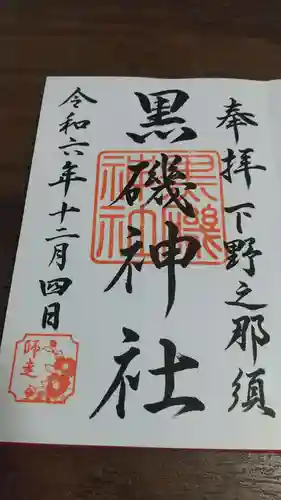 奉拝 下野之那須
黒磯神社
黒磯
神社
令和六年十二月四日
師走